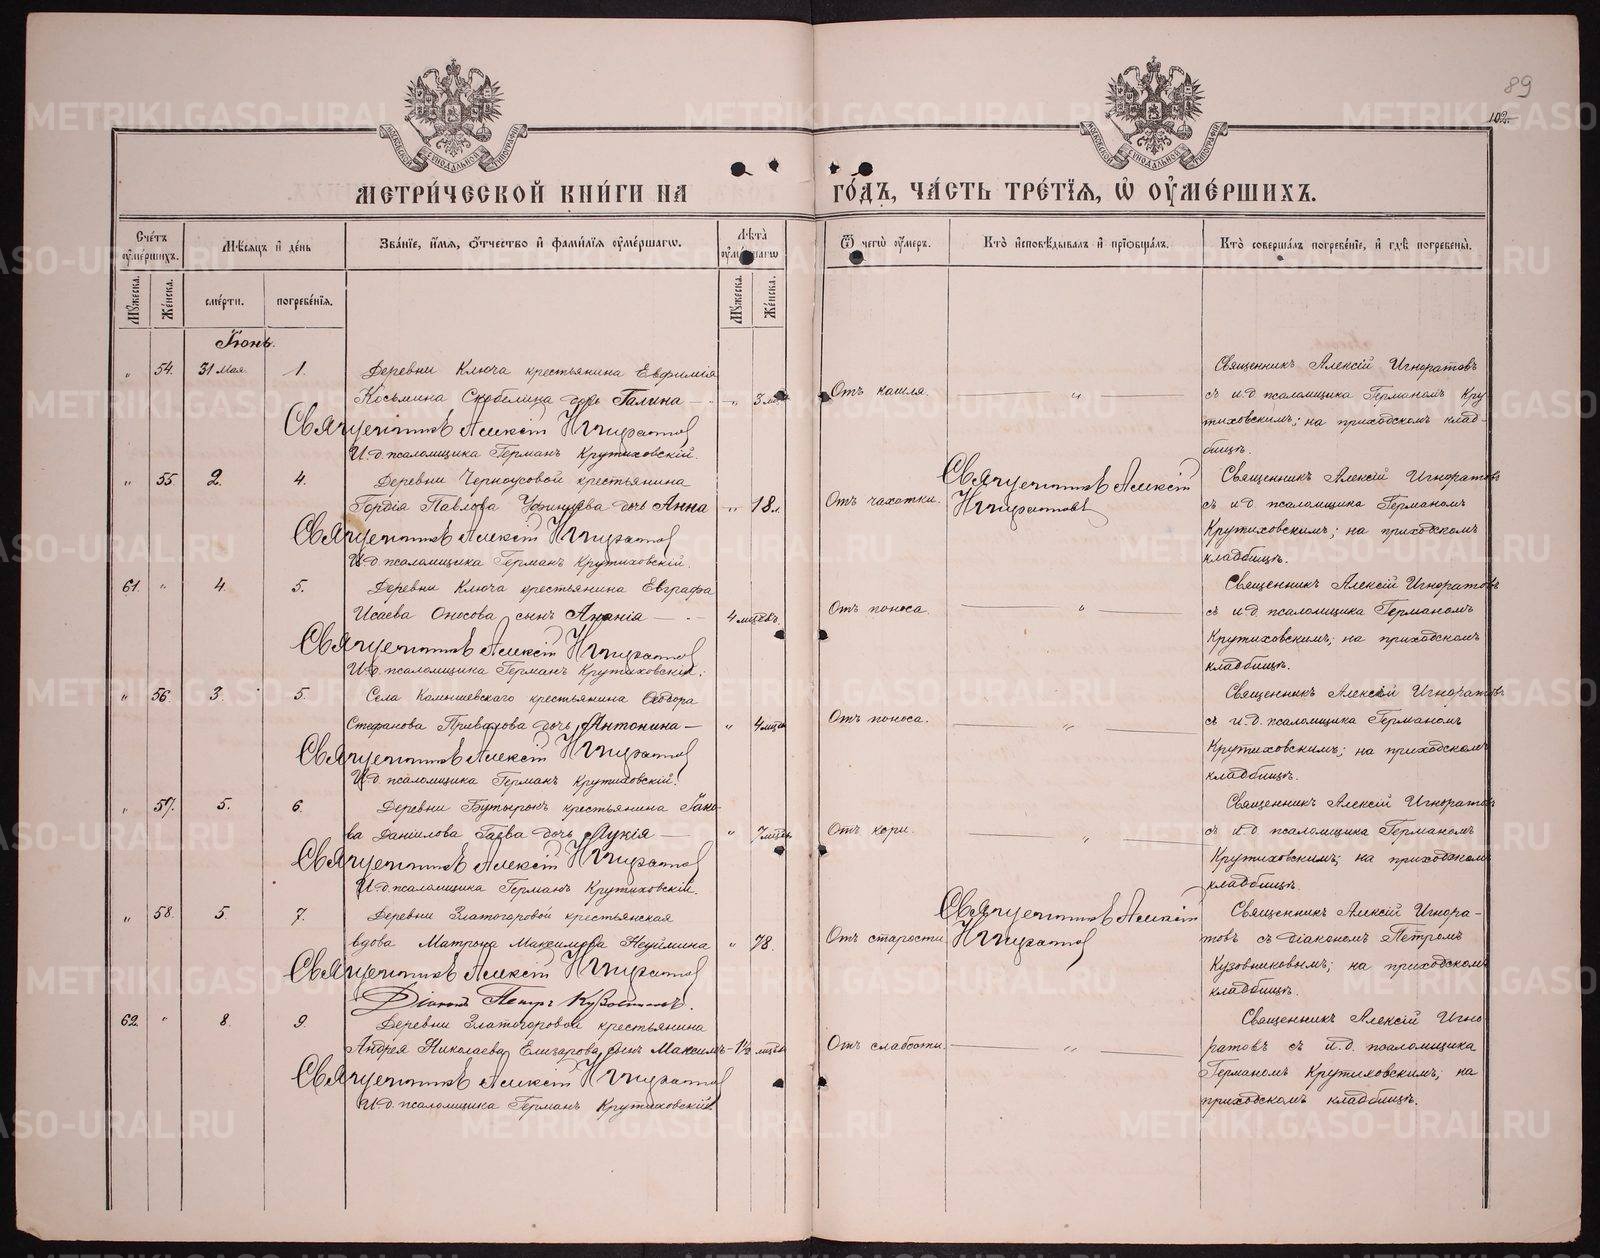 89
102.
МОСКОВСКОЙ СѴНОДАЛЬНОЙ ТИПОГРАФІИ
МОСКОВСКОЙ СѴНОДАЛЬНОЙ ТИПОГРАФІИ
МЕТРИ́ЧЕСКОЙ КНИ́ГИ НА ГО́ДЪ, ЧА́СТЬ ТРЕ́ТЇѦ, Ѡ҆ ОУ҆МЕ́РШИХЪ.
Счетъ оумершихъ.
Мѣсяцъ и день
Званіе, имя, отчество и фамилія оумершагѡ.
Лѣта оумершагѡ
Ѿ чегѡ оумеръ.
Кто исповѣдывалъ и пріобщалъ.
Кто совершалъ погребеніе, и гдѣ погребены.
Мужеска.
Женска.
смерти.
погребенія.
Мужеска.
Женска.
Іюнь.
" 54. 31 Мая. 1.
Деревни Ключа крестьянина Евфимія
Косьмина Скобелина дочь Галина — " 3
Священникъ Алексій Игноратовъ
И.д. псаломщика Германъ Крутиховскій.
Отъ кашля. "
Священникъ Алексій Игноратовъ
съ и.д. псаломщика Германомъ Кру
тиховскимъ; на приходскомъ клад-
бищѣ.
" 55 2. 4.
Деревни Черноусовой крестьянина
Гордія Павлова дочь Анна — " 18 л.
Священникъ Алексій Игноратовъ
И.д. псаломщика Германъ Крутиховскій.
Отъ чахотки.
Священникъ Алексій
Игноратовъ
Священникъ Алексій Игноратовъ
съ и.д. псаломщика Германомъ
Крутиховскимъ; на приходскомъ
кладбищѣ.
61. " 4. 5.
Деревни Ключа крестьянина Евграфа
Исаева Оносова сынъ Ананія — 4 мцевъ.
Священникъ Алексій Игноратовъ
И.д. псаломщика Германъ Крутиховскій.
Отъ поноса. "
Священникъ Алексій Игноратовъ
съ и.д. псаломщика Германомъ
Крутиховскимъ; на приходскомъ
кладбищѣ.
" 56. 3. 5.
Села Камышевскаго крестьянина Ѳеодора
Стефанова Привалова дочь Антонина — " 4 мцев
Священникъ Алексій Игноратовъ
И.д. псаломщика Германъ Крутиховскій.
Отъ поноса. "
Священникъ Алексій Игноратовъ
съ и.д. псаломщика Германомъ
Крутиховскимъ; на приходскомъ
кладбищѣ.
" 57. 5. 6.
Деревни Бутырокъ крестьянина Іако-
ва Даніилова Гаева дочь Лукія — " 7 мцевъ.
Священникъ Алексій Игноратовъ
И.д. псаломщика Германъ Крутиховскій.
Отъ кори. "
Священникъ Алексій Игноратовъ
съ и.д. псаломщика Германомъ
Крутиховскимъ; на приходскомъ
кладбищѣ.
" 58. 5. 7.
Деревни Златогоровой крестьянская
вдова Матрона Максимова Неуймина " 78.
Священникъ Алексій Игноратовъ
Діаконъ Петръ Кузовниковъ.
Отъ старости
Священникъ Алексій
Игноратовъ
Священникъ Алексій Игнора-
товъ съ діакономъ Петромъ
Кузовниковымъ; на приходскомъ
кладбищѣ.
62. " 8. 9.
Деревни Златогоровой крестьянина
Андрея Николаева Елизарова сынъ Максимъ — 1½ мцев
Священникъ Алексій Игноратовъ
И.д. псаломщика Германъ Крутиховскій.
Отъ слабости. "
Священникъ Алексій Игно
ратовъ съ и.д. псаломщика
Германомъ Крутиховскимъ; на
приходскомъ кладбищѣ.
METRIKI.GASO-URAL.RU